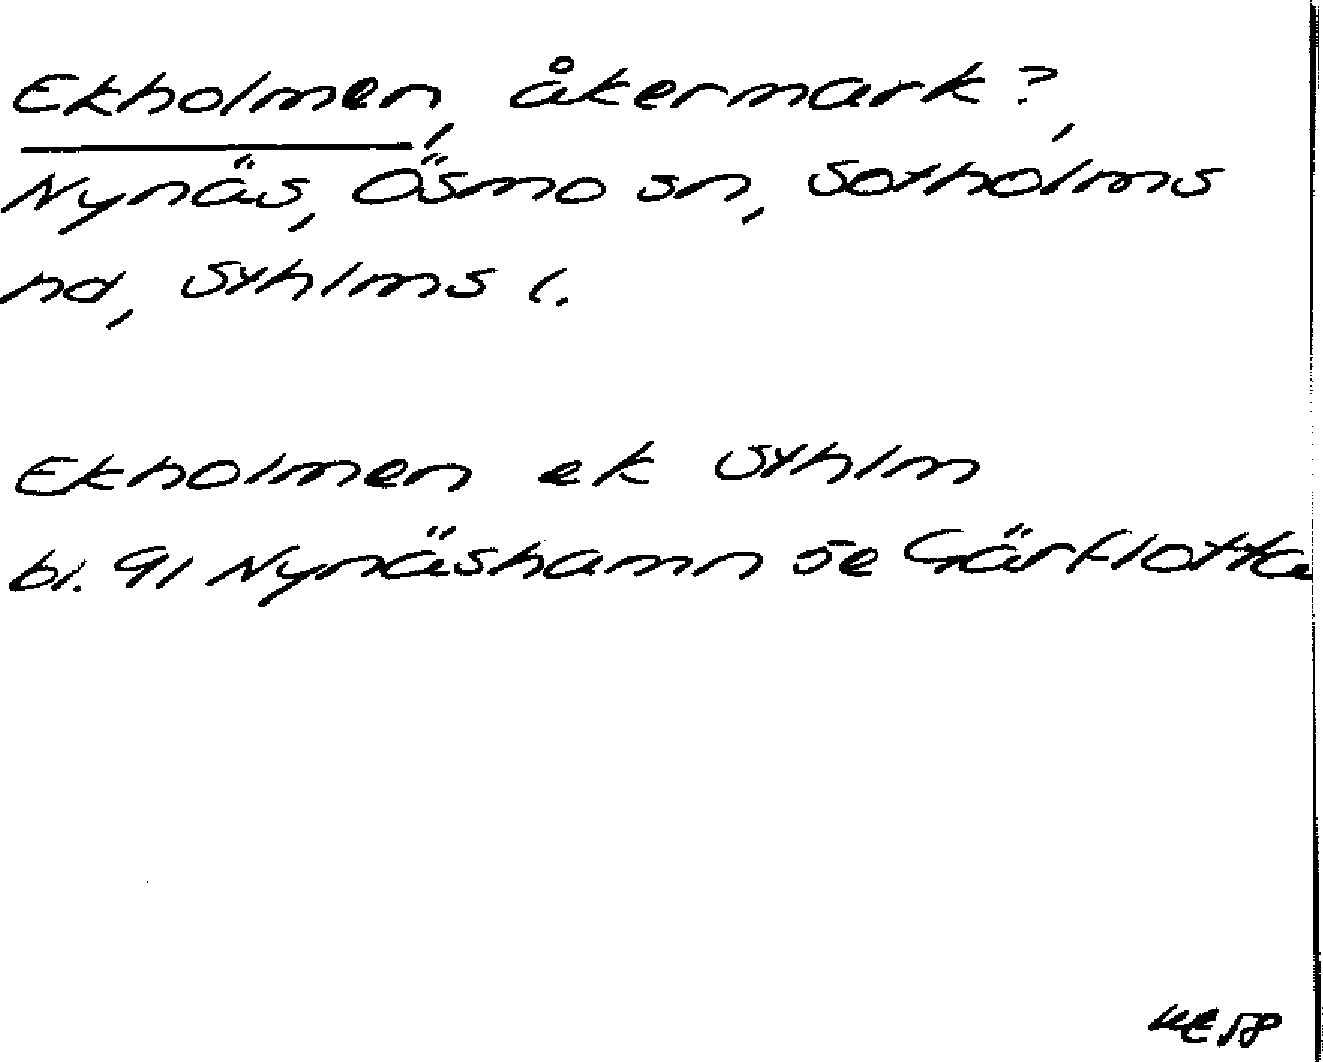 Ekholmen, åkermark?,
Nynäs, Ösmo sn, Sotholms
hd, Sthlms l.
Ekholmen ek Sthlm
bl. 91 Nynäshamn se Gärflotta